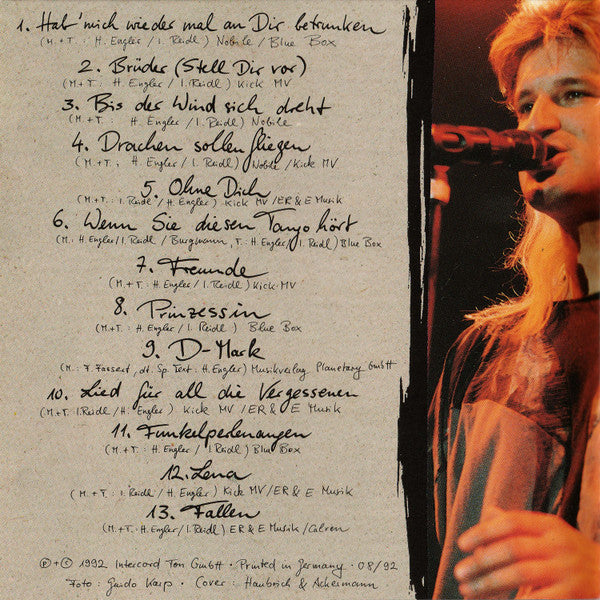 1. Hab' mich wieder mal an Dir betrunken
(M.+T. : H. Engler / I. Reidl) Nobile / Blue Box
2. Brüder (Stell Dir vor)
(M.+T. : H. Engler / I. Reidl) Kick MV
3. Bis der Wind sich dreht
(M.+T. : H. Engler / I. Reidl) Nobile
4. Drachen sollen fliegen
(M.+T. : H. Engler / I. Reidl) Nobile / Kick MV
5. Ohne Dich
(M.+T. : I. Reidl / H. Engler) Kick MV / ER & E Musik
6. Wenn Sie diesen Tango hört
(M. : H. Engler / I. Reidl / Burgmann, T. : H. Engler / I. Reidl) Blue Box
7. Freunde
(M.+T. : H. Engler / I. Reidl) Kick MV
8. Prinzessin
(M.+T. : H. Engler / I. Reidl) Blue Box
9. D-Mark
(M. : F. Fassert, dt. Sp. Text : H. Engler) Musikverlag Planetary GmbH
10. Lied für all die Vergessenen
(M.+T. : I. Reidl / H. Engler) Kick MV / ER & E Musik
11. Funkelperlenaugen
(M.+T. : H. Engler / I. Reidl) Blue Box
12. Lena
(M.+T. : I. Reidl / H. Engler) Kick MV / ER & E Musik
13. Fallen
(M.+T. : H. Engler / I. Reidl) ER & E Musik / Calren
℗ + © 1992 Intercord Ton GmbH · Printed in Germany · 08/92
Foto : Guido Karp · Cover : Haubrich & Ackermann